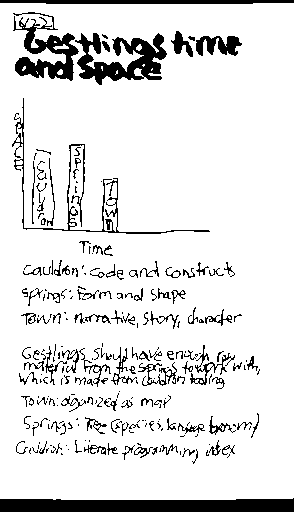 6/22
Gestlings time
and Space
SPACE
Cauldron
Springs
Town
Time
Cauldron: code and constructs
Springs: Form and shape
Town: narrative, story, character
Gestlings should have enough raw
material from the springs to work with,
which is made from cauldron tooling
Town: oganized as map
Springs: Tree (species, language taxonomy)
Cauldron: Literate programming index